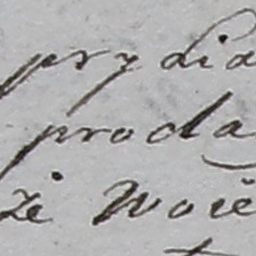 przy dia
proda
że Woie